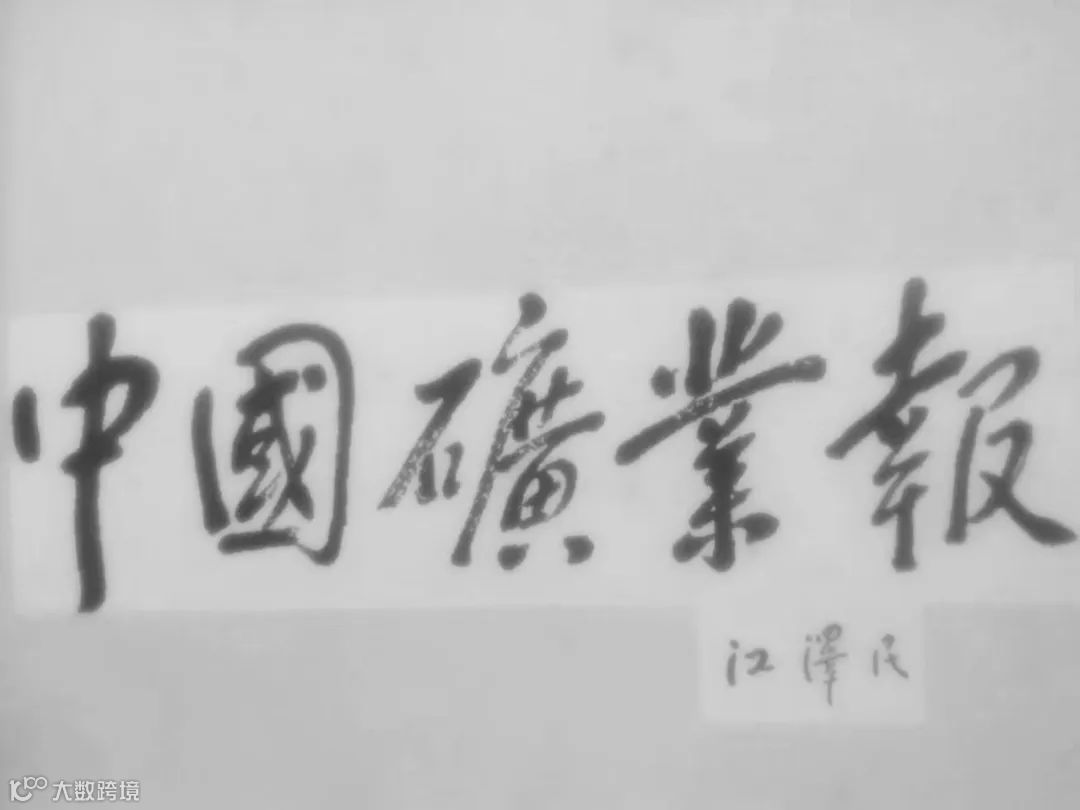 中國礦業報
江澤民
大数跨境